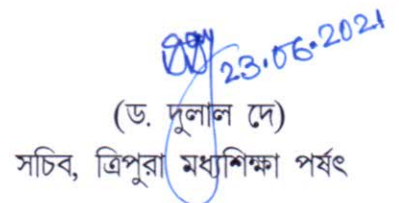 23.06.2021
(ড. দুলাল দে)
সচিব, ত্রিপুরা মধ্যশিক্ষা পর্ষৎ